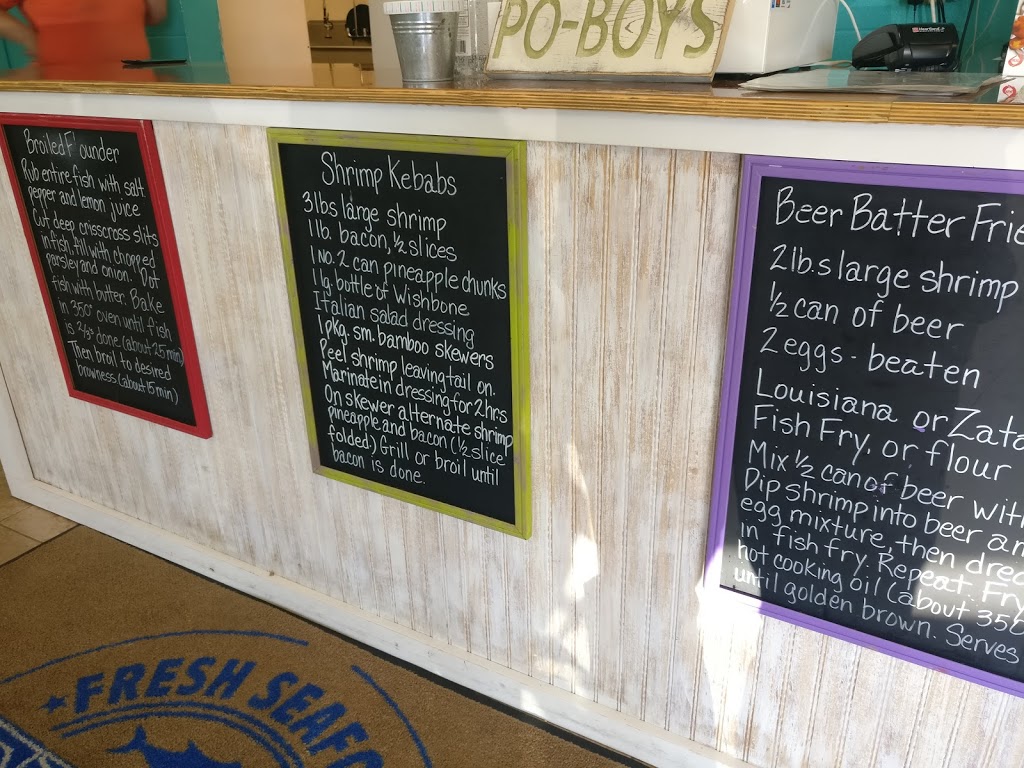 PO-BOYS
Broiled F'ounder
Rub entire fish with salt
pepper and lemon juice
Cut deep crisscross slits
in fish, fill with chopped
parsley and onion. Dot
fish with butter. Bake
in 350° oven until fish
is 2/3 done (about 25 min)
Then broil to desired
browness (about 15 min)
Shrimp Kebabs
3 lbs large shrimp
1 lb. bacon, ½ slices
1 no. 2 can pineapple chunks
1 lg. bottle of Wishbone
Italian salad dressing
1 pkg. sm. bamboo skewers
Peel shrimp leaving tail on.
Marinate in dressing for 2 hrs
On skewer alternate shrimp
pineapple and bacon (½ slice
folded) Grill or broil until
bacon is done.
Beer Batter Frie
2 lb.s large shrimp
½ can of beer
2 eggs - beaten
Louisiana or Zata
Fish Fry, or flour
Mix ½ can of beer with
Dip shrimp into beer an
egg mixture, then dred
in fish fry. Repeat. Fry
hot cooking oil (about 350
until golden brown. Serves
FRESH SEAFO